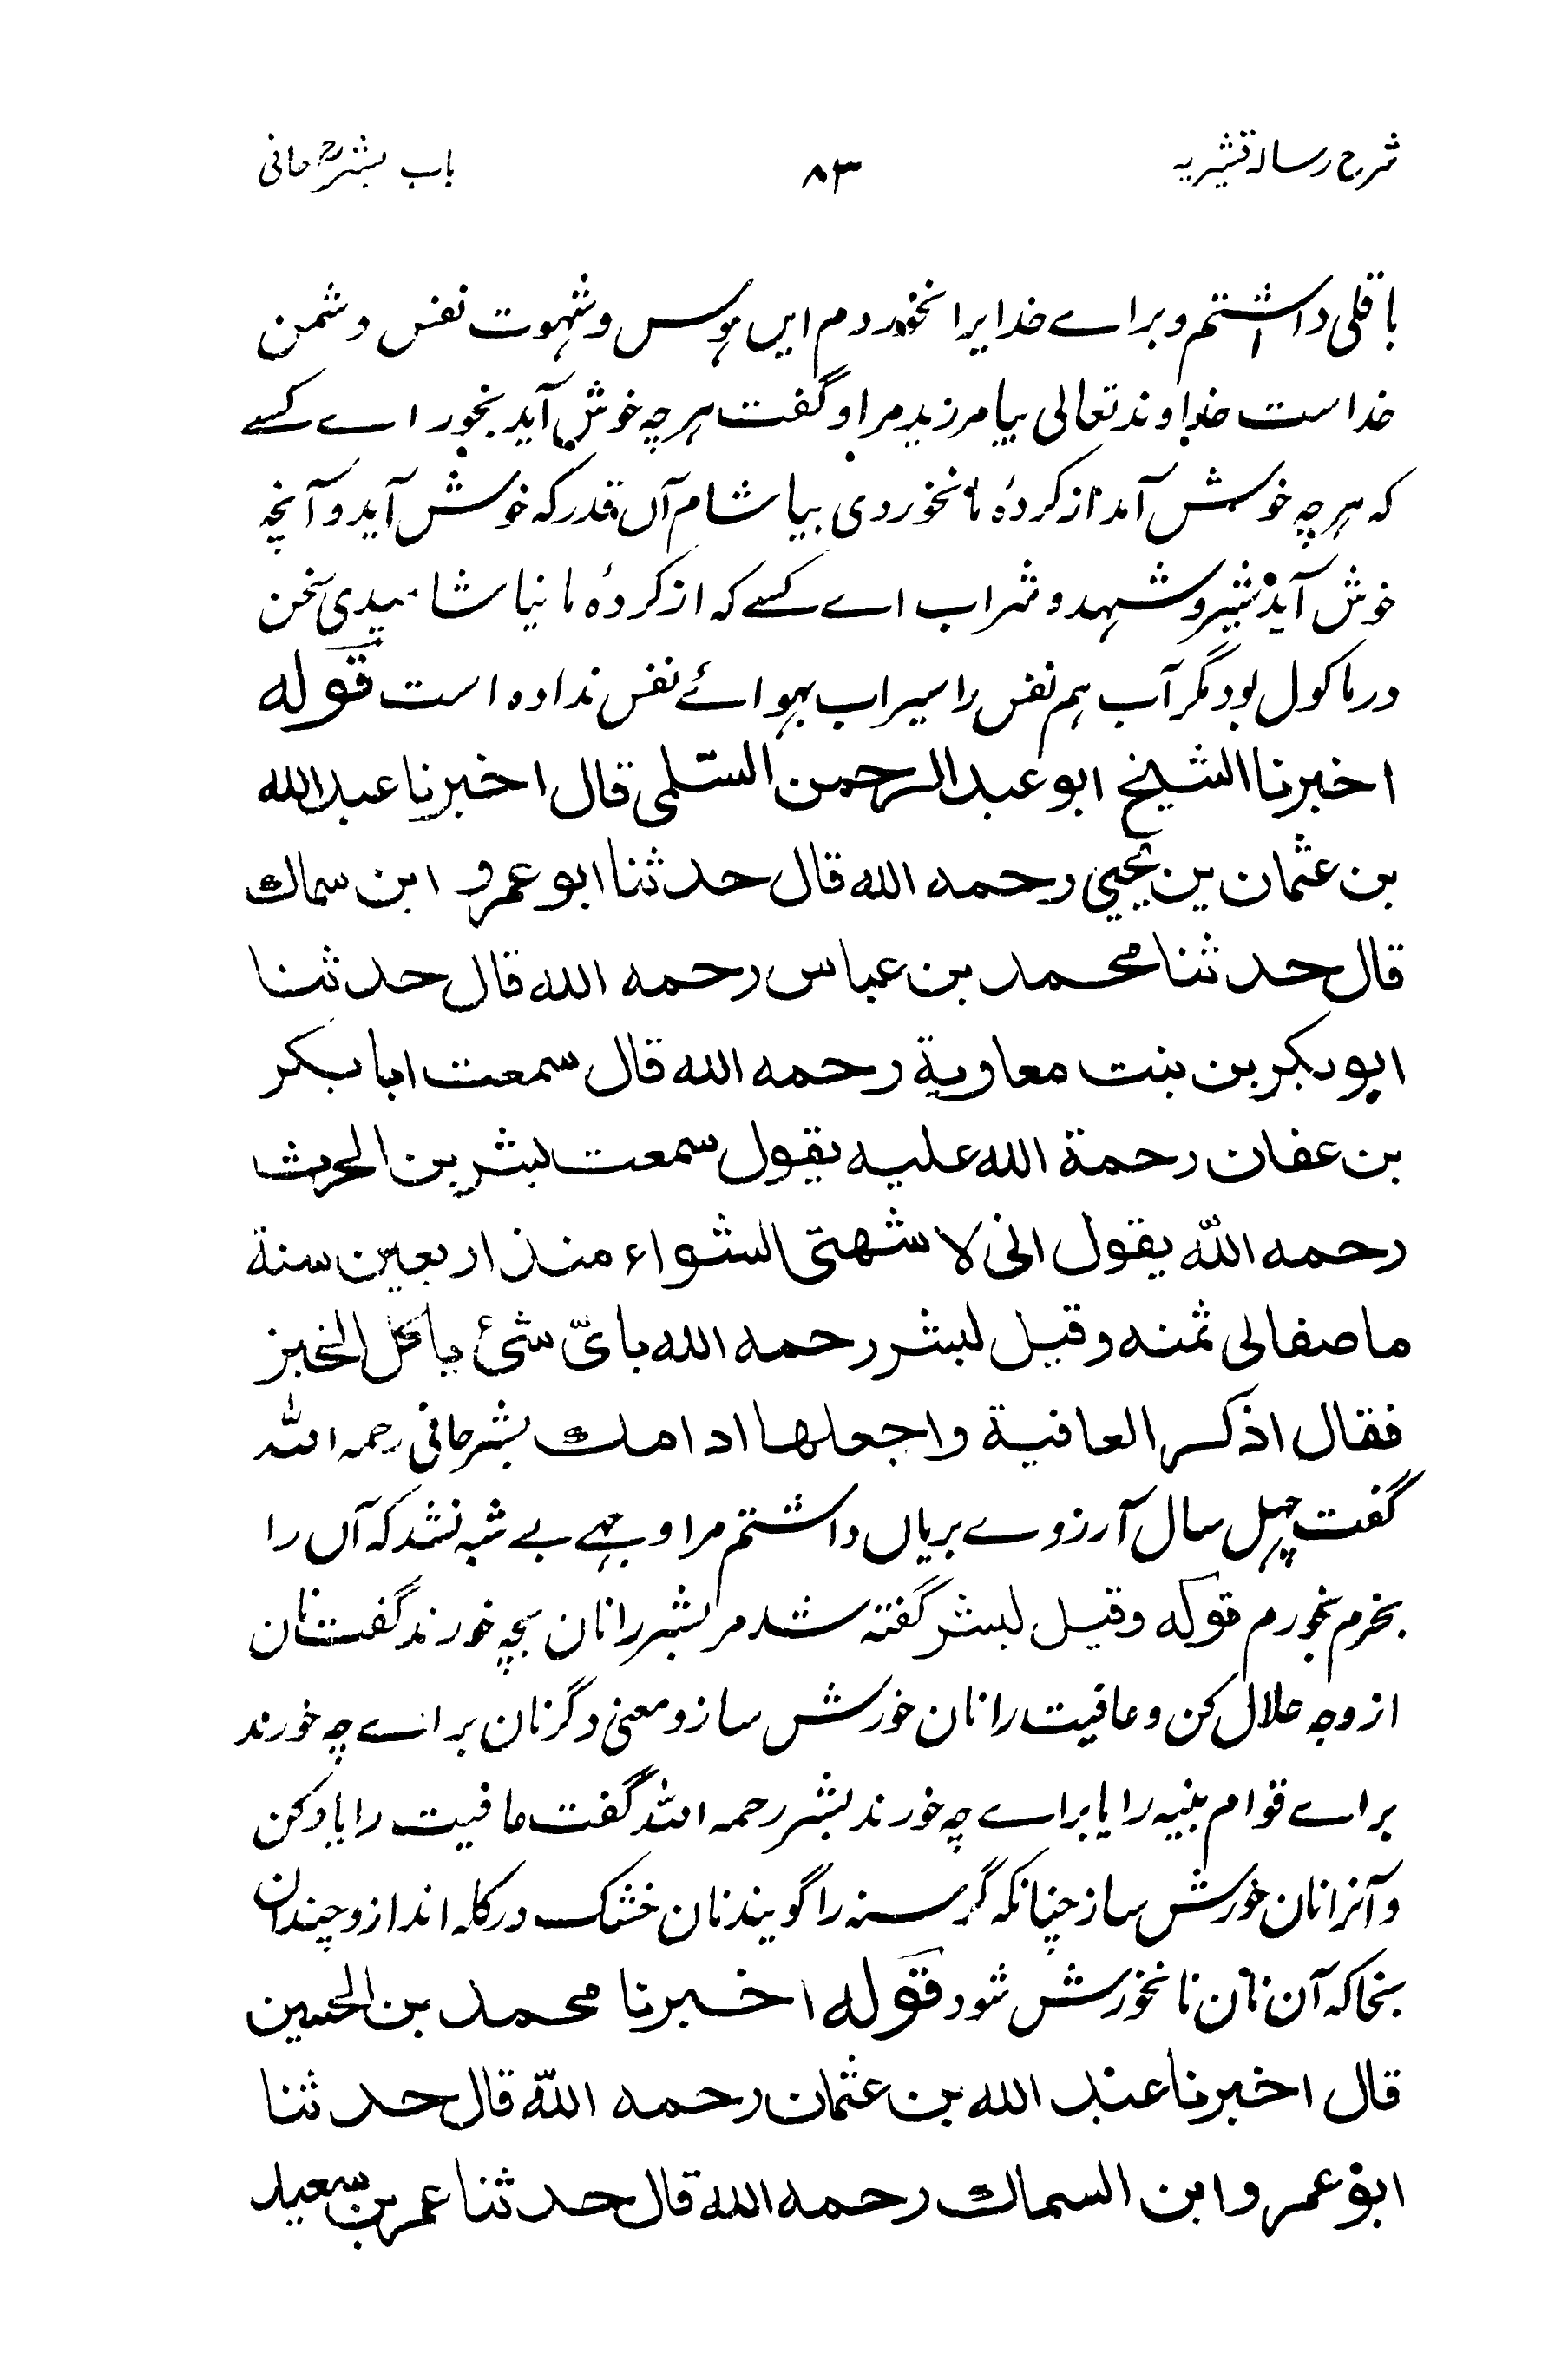 شرح رسالہ قشیریہ ۸۳ باب بشر حافی
باقلی داشتم و براے خدایرا نخوردم ایں ہوس و شہوت نفس دشمن
خداست خداوند تعالی بیامرزید مرا و گفت ہرچہ خوش آید بخور اے کسے
کہ ہرچہ خوش آمد از کردۂ ما نخوردی بیاشام آں قدر کہ خوش آید و آنچہ
خوش آید شیر و شہد و شراب اے کسے کہ از کردۂ ما نیاشامیدی سخن
در ماکول بود مگر آب ہم نفس را سیراب بہوائے نفس ندادہ است قوله
اخبرنا الشيخ ابو عبد الرحمن السّلمی قال اخبرنا عبد الله
بن عثمان بن یحیی رحمه الله قال حدثنا ابو عمرو ابن سماك
قال حدثنا محمد بن عباس رحمه الله قال حدثنا
ابو بكر بن بنت معاوية رحمه الله قال سمعت ابا بكر
بن عفان رحمة الله عليه يقول سمعت بشر بن الحرث
رحمه اللّه يقول انی لاشهتی الشواء منذ اربعین سنة
ما صفا لی ثمنه و قيل لبشر رحمه الله بایّ شئ یاکل الخبز
فقال اذكر العافية واجعلها ادامك بشر حافی رحمہ اللہ
گفت چہل سال آرزوے بریاں داشتم مرا وجہے بے شبہ نشد کہ آں را
بخرم بخورم قوله وقیل لبشر گفتہ شد مر بشر را نان بچہ خورند گفت نان
از وجہ حلال کن و عافیت را نان خورش ساز و معنی دگر نان براے چہ خورند
براے قوام بنیہ را یا براے چہ خورند بشر رحمہ اللہ گفت عافیت را یاد کن
و آنرا نان خورش ساز چنانکہ گرسنہ را گویند نان خشک در کلہ انداز و چندان
بخا کہ آن نان نانخورش شود قوله اخبرنا محمد بن الحسین
قال اخبرنا عبد الله بن عثمان رحمه اللّه قال حدثنا
ابو عمرو ابن السماك رحمه الله قال حدثنا عمر بن سعيد